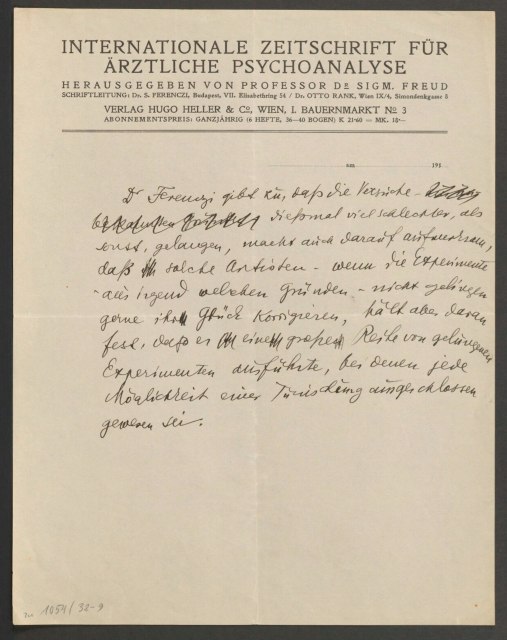 INTERNATIONALE ZEITSCHRIFT FÜR
ÄRZTLICHE PSYCHOANALYSE
HERAUSGEGEBEN VON PROFESSOR DR SIGM. FREUD
SCHRIFTLEITUNG: Dr. S. FERENCZI, Budapest, VII. Elisabethring 54 / Dr. OTTO RANK, Wien IX/4, Simondenkgasse 8
VERLAG HUGO HELLER & Co, WIEN, I. BAUERNMARKT No 3
ABONNEMENTSPREIS: GANZJÄHRIG (6 HEFTE, 36–40 BOGEN) K 21·60 = MK. 18·–
am 191
Dr Ferenczi gibt zu, daß die Versuche –
diesmal viel schlechter, als
sonst, gelangen, macht auch darauf aufmerksam,
daß solche Artisten – wenn die Experimente
– aus irgend welchen Gründen – nicht gelingen
gerne ihr Glück korrigieren, hält aber daran
fest, dass er eine große Reihe von gelungenen
Experimenten ausführte, bei denen jede
Möglichkeit einer Täuschung ausgeschlossen
gewesen sei.
1054/32-9